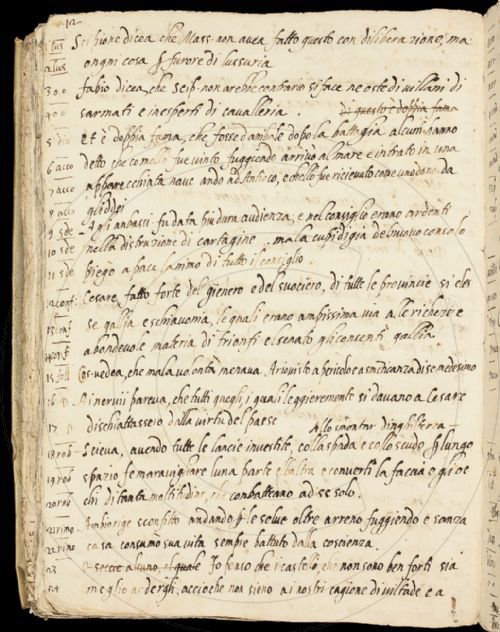 12
Scipione dicea che Mass. non avea fatto questo con diliberazione, ma
ongni cosa p furore di lussuria
3 fabio dicea, che Scip. non arebbe contrario si face ne oste di villani di
4 sarmati e inesperti di cavalleria. di questo è doppia fama
5 Et è doppia fama, che fosse d'ambale dopo la battaglia alcuni hanno
6 detto che como fue vinto fuggendo arrivò al mare e intrato in una
7 apparecchiata nave andò ad Antioco, e ch'ello fue ricievuto come
8 gli
9 Agli anbasc. fu data piu dura audienza, e nel consiglio erano ardenti
10 nella distruzione di cartagine. ma la cupidigia del nuovo consolo
11 piego a pace l'animo di tutto il consiglio
12 Cesare fatto forte del gienero e del suociero, di tutte le provincie si eles
13 se gallia e schiavonia, le quali erano ampissima via a le richeze e
abondevole materia di trionfi el senato gli consentì gallia.
15 Ces. vedea, che mala volontà menava Ariovisto a pericolo
16 Ai nervii pareva, che tutti quegli, i quali leggieremente si davano a Cesare
17 dischiattasseio dalla virtu del paese Allo smontar d'inghilterra
18 Scieva, avendo tutte le lancie investite, colla spada e collo scudo p lungo
19 spazio fe maravigliare l'una parte e l'altra e convertì la faccia e gli oc
20 chi di tanta moltitudine, che conbatteano ad se solo.
21 Ambiorige sconfitto andando p le selve oltre arreno fuggiendo e sanza
22 casa consumò sua vita sempre battuto dalla coscienza.
23 Io penso che i castelli, che non sono ben forti sia
24 meglio arderghi, accioche non sieno a i nostri cagione di viltade e a